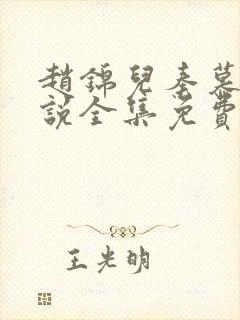 趙錦兒秦慕
說全集免費
王光明